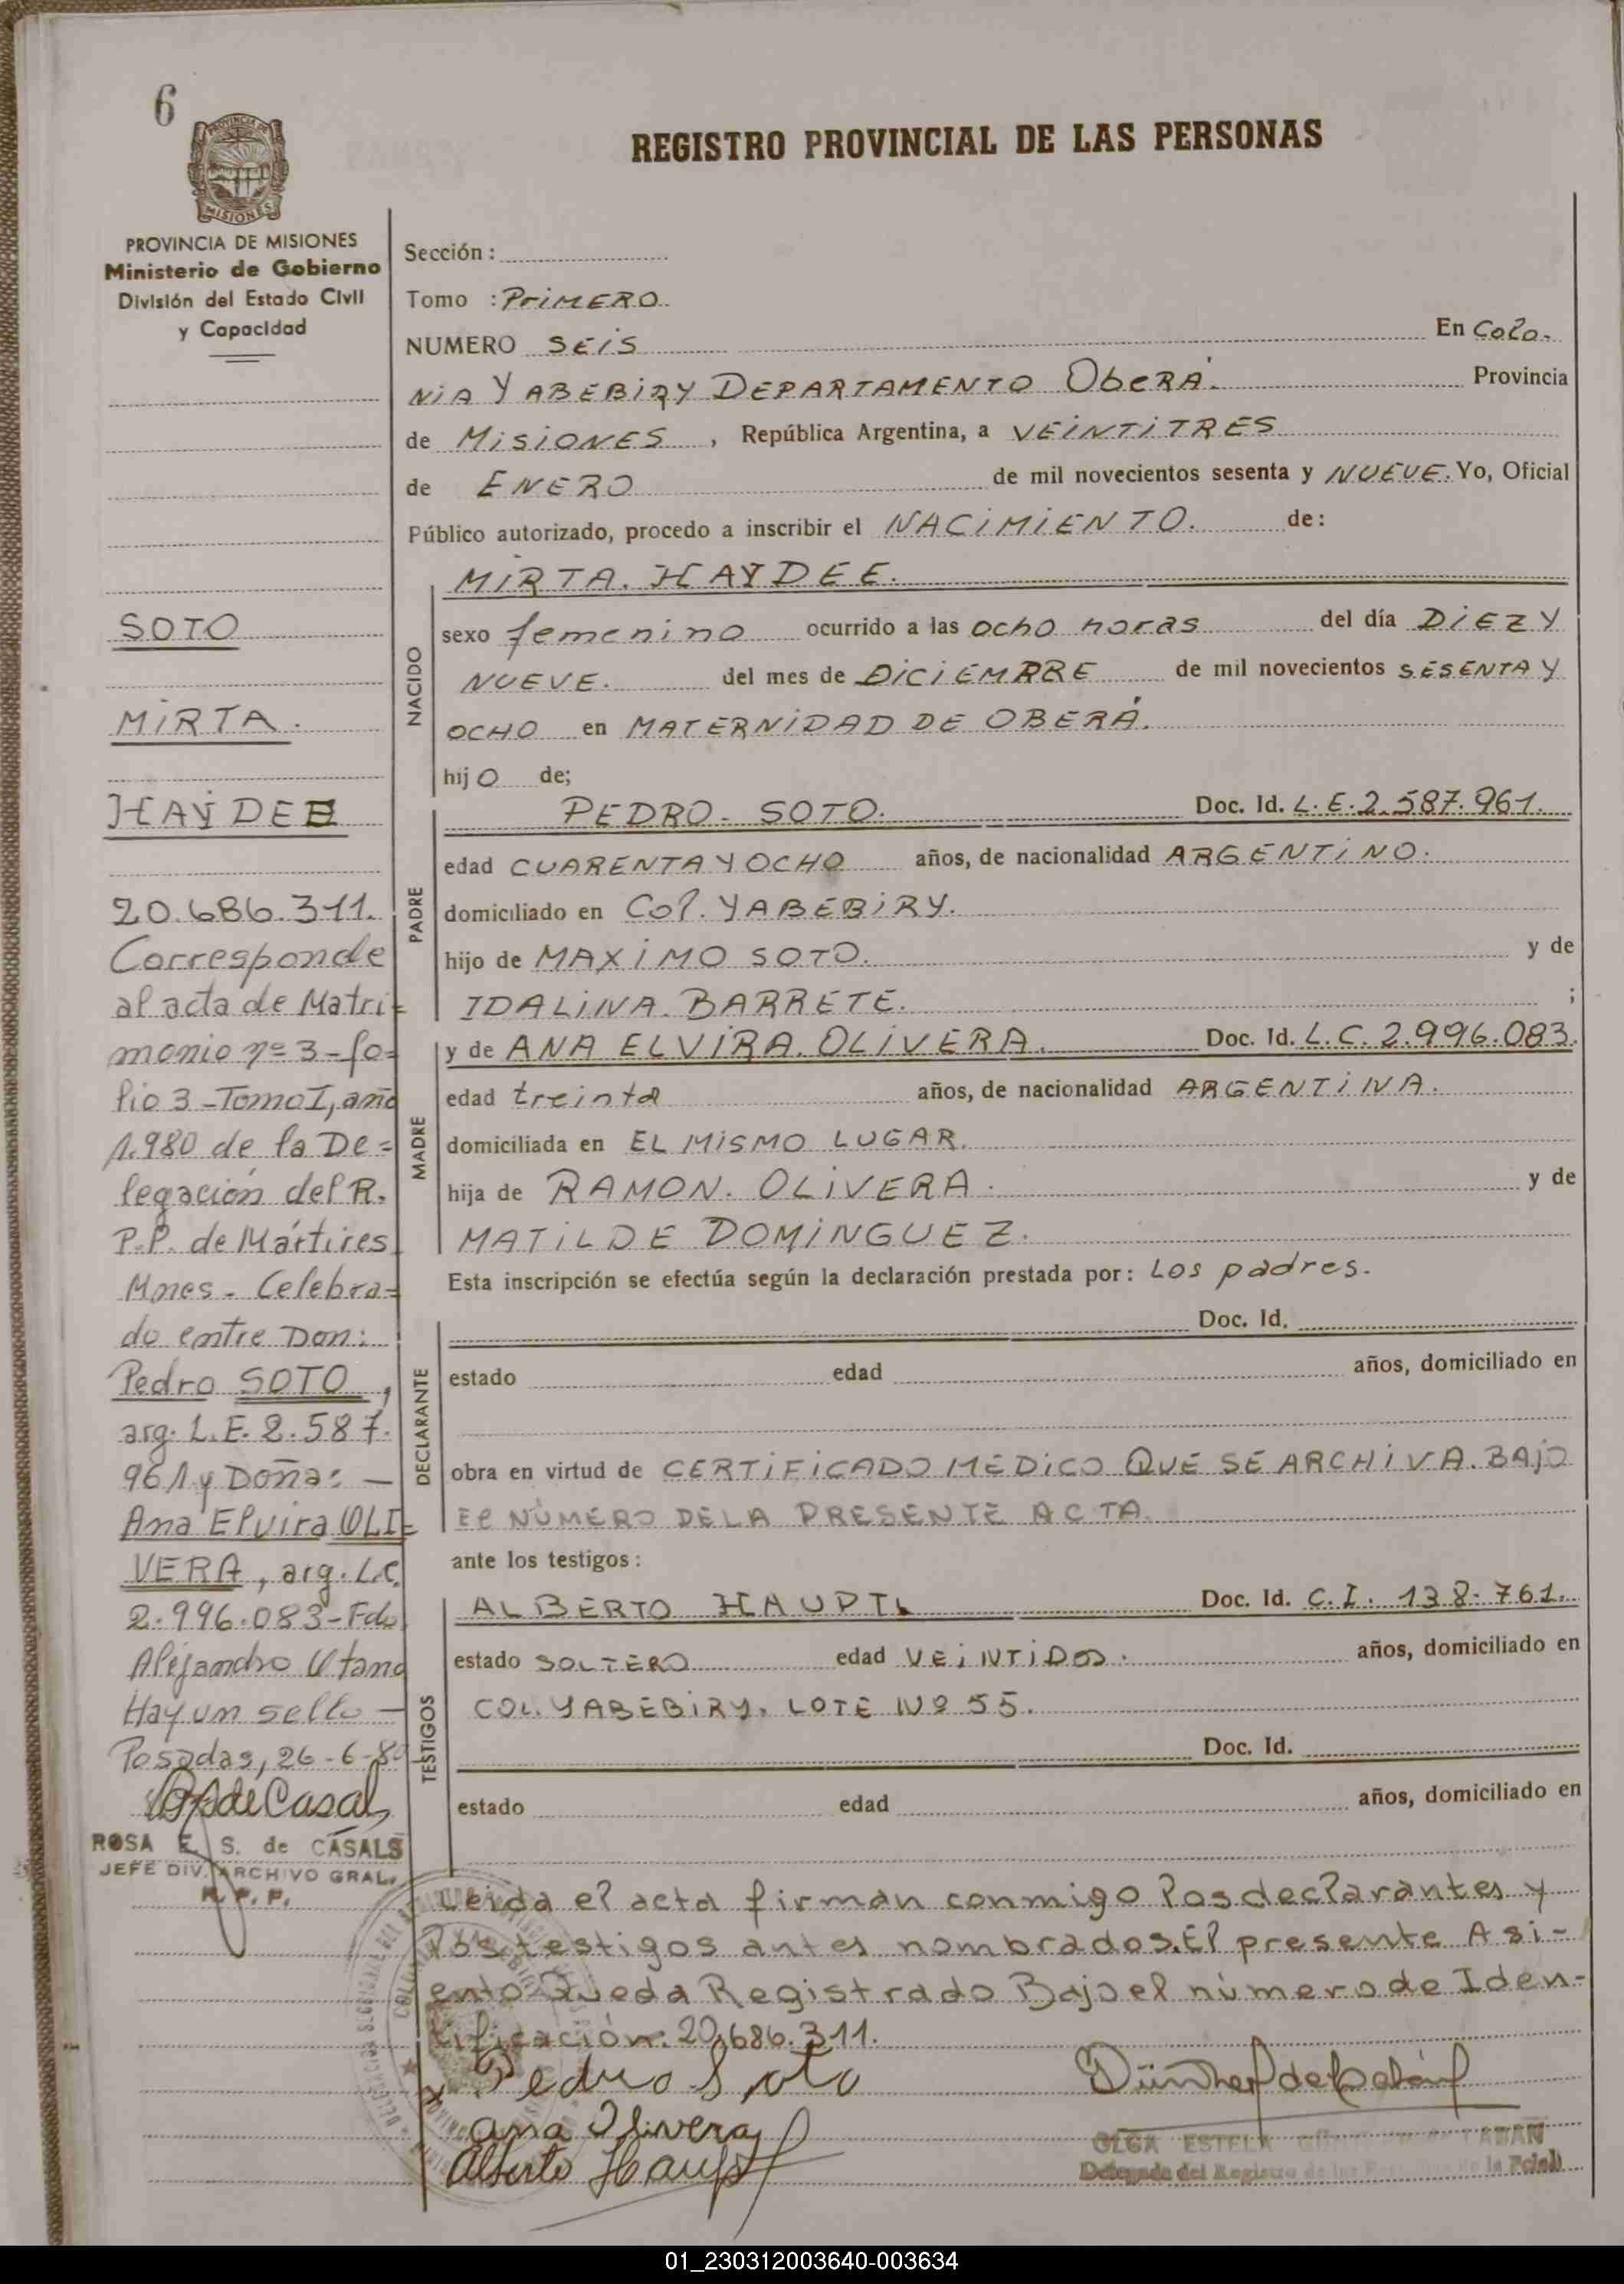 6
PROVINCIA DE
MISIONES
REGISTRO PROVINCIAL DE LAS PERSONAS
PROVINCIA DE MISIONES
Ministerio de Gobierno
División del Estado Civil
y Capacidad
SOTO
MiRTA.
HAYDEE
20.686.311.
Corresponde
al acta de Matri=
monio nº 3-fo=
lio 3-Tomo I, año
1.980 de la De=
legación del R.
P.P. de Mártires
Mnes- Celebra=
do entre Don:
Pedro SOTO,
arg. L.E. 2.587.
961 y Doña: —
Ana Elvira OLI=
VERA, arg. L.C.
2.996.083-Fdo
Alejandro Utand
Hay un sello —
Posadas, 26-6-80
ROSA E. S. de CASALS
JEFE DIV. ARCHIVO GRAL.
R. P. P.
Sección:
Tomo : PriMERO
NUMERO SEiS En Colo-
NiA YABEBiRY DEPARTAMENTO ObERÁ. Provincia
de MiSiONES, República Argentina, a VEiNTiTRES
de ENERO de mil novecientos sesenta y NUEVE. Yo, Oficial
Público autorizado, procedo a inscribir el NACiMiENTO. de:
NACIDO
MiRTA. HAYDEE.
sexo femenino ocurrido a las ocho horas del día DiEZ Y
NUEVE. del mes de DiCiEMBRE de mil novecientos SESENTA Y
OCHO en MATERNiDAD DE OBERÁ.
hijO de;
PADRE
PEDRO- SOTO. Doc. Id. L.E.2.587.961.
edad CUARENTA Y OCHO años, de nacionalidad ARGENTiNO.
domiciliado en Col. YABEBiRY.
hijo de MAXiMO SOTO. y de
IDALiNA. BARRETE. ;
MADRE
y de ANA ELViRA. OLiVERA. Doc. Id. L.C. 2.996.083.
edad treinta años, de nacionalidad ARGENTiNA.
domiciliada en EL MiSMO LUGAR.
hija de RAMON. OLiVERA. y de
MATiLDE DOMiNGUEZ.
Esta inscripción se efectúa según la declaración prestada por: Los padres.
DECLARANTE
Doc. Id.
estado edad años, domiciliado en
obra en virtud de CERTiFiCADO MEDiCO QUE SE ARCHiVA. BAjO
El NÚMERO DE LA PRESENTE ACTA.
ante los testigos:
TESTIGOS
ALBERTO HAUPT. Doc. Id. C.I. 138-761.
estado SOLTERO edad VEiNTiDOS. años, domiciliado en
COL. YABEBiRY. LOTE Nº 55.
Doc. Id.
estado edad años, domiciliado en
Leida el acta firman conmigo los declarantes y
los testigos antes nombrados. El presente Asi-
ento Queda Registrado Bajo el número de Iden-
tificación. 20.686.311.
Pedro Soto
Ana Olivera
Alberto Haupt
OLGA ESTELA
Delegada del Registro de las
01_230312003640-003634